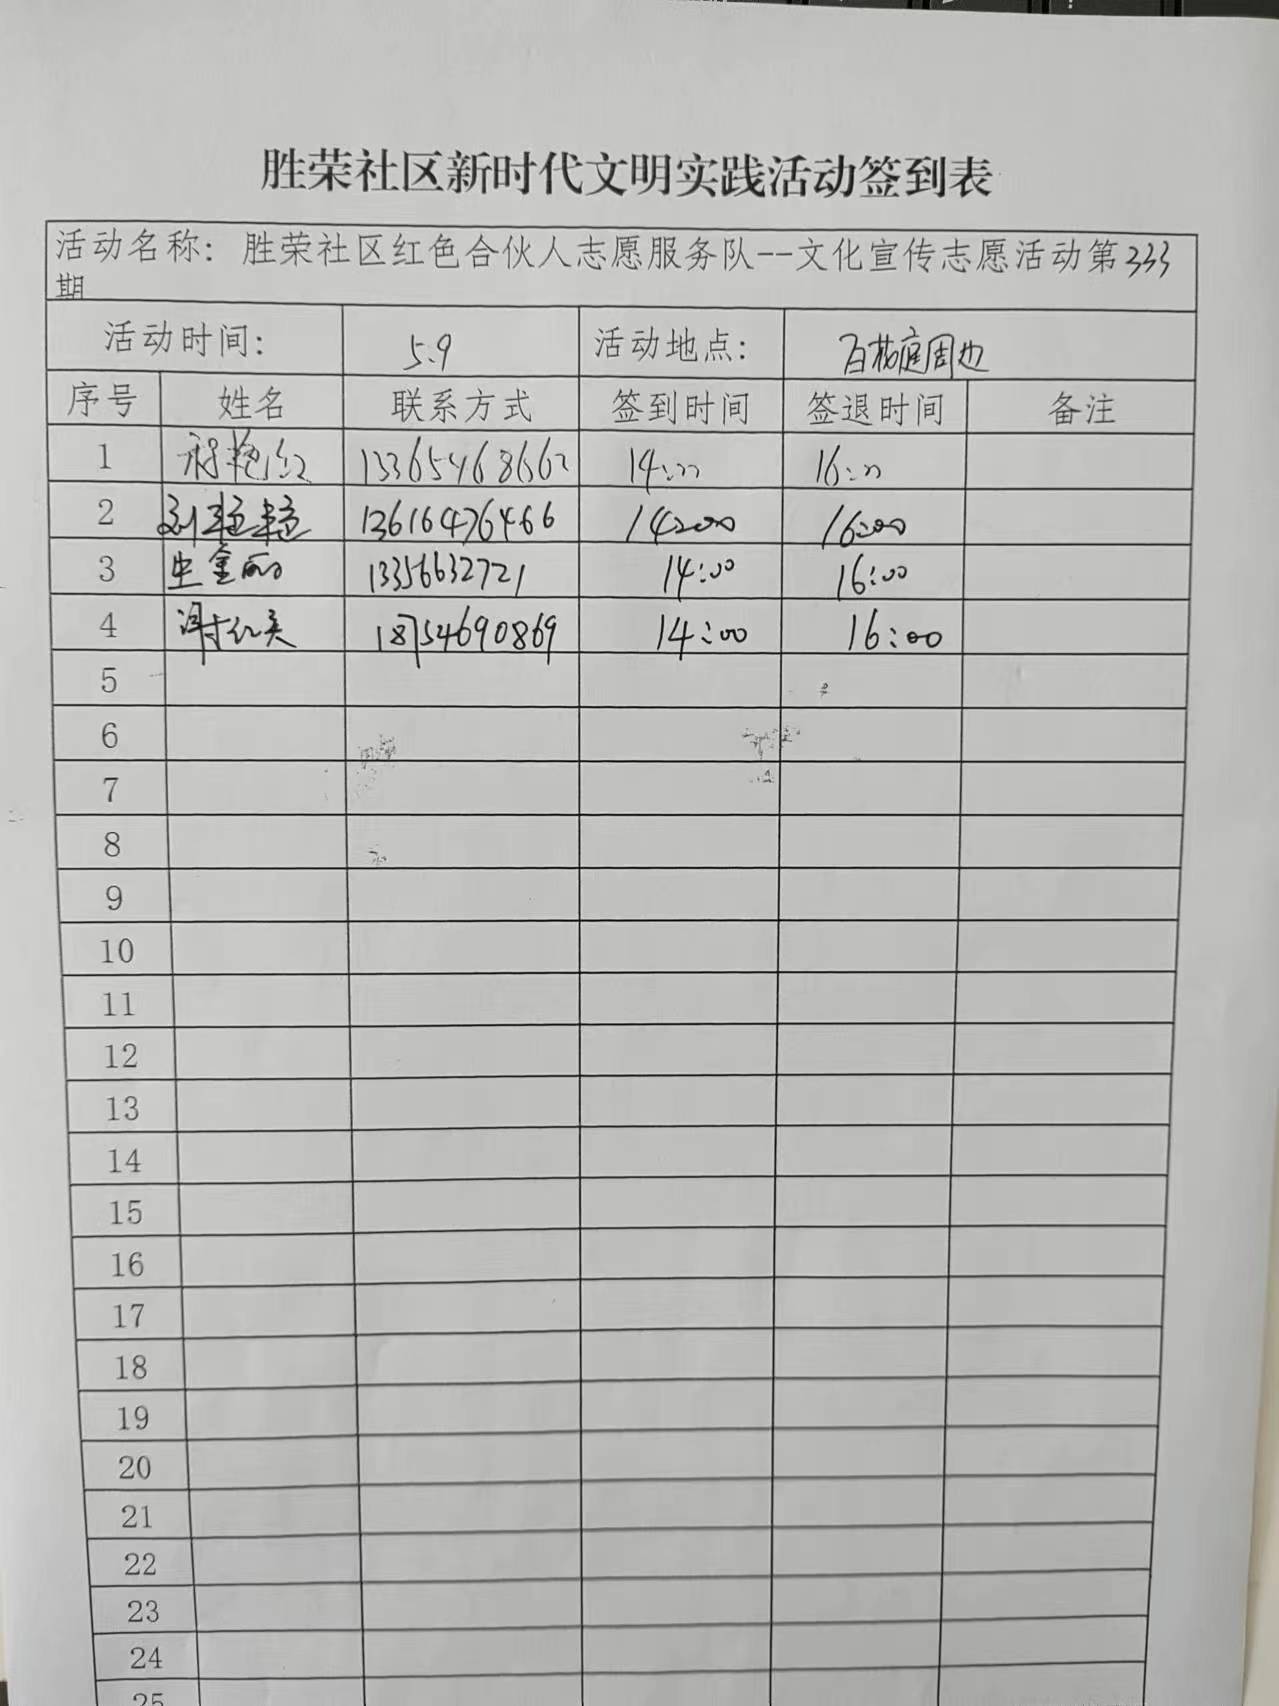 胜荣社区新时代文明实践活动签到表
活动名称：胜荣社区红色合伙人志愿服务队--文化宣传志愿活动第333
期
活动时间： 5.9 活动地点： 百花庭周边
序号 姓名 联系方式 签到时间 签退时间 备注
1 艳红 13365468662 14:00 16:00
2 刘粒粒 13616476466 14:00 16:00
3 生金丽 13356632721 14:00 16:00
4 谢红英 18754690869 14:00 16:00
5
6
7
8
9
10
11
12
13
14
15
16
17
18
19
20
21
22
23
24
25